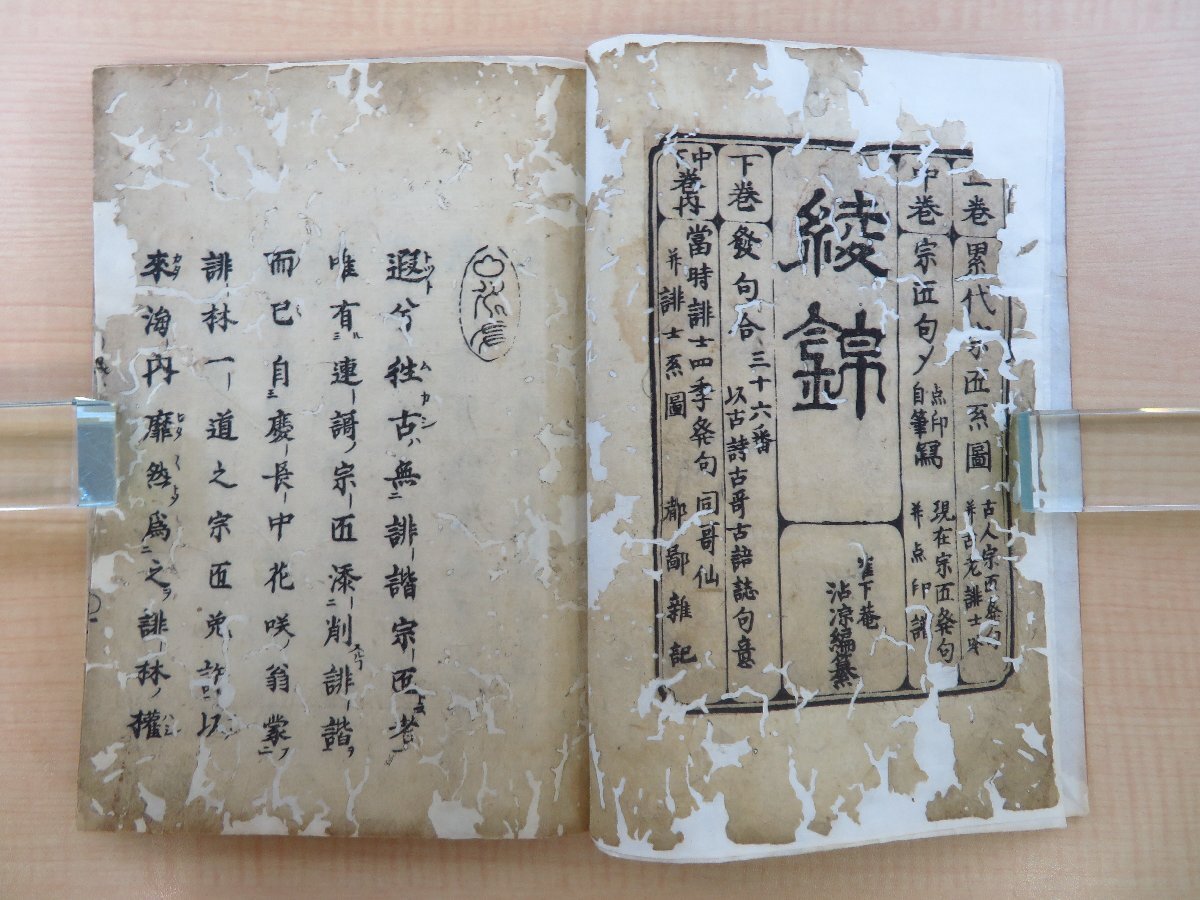 上巻 累代宗匠系圖 古人宗匠發句
并古老誹士
中巻 宗匠句ノ 点印 自筆寫 現在宗匠発句
并点印譜
綾錦
崔下菴
沾凉編纂
下巻 發句合 三十六番
以古詩古哥古語誌句意
中下巻内 當時誹士四季発句 同哥仙
并誹士系圖 都鄙雜記
遐兮徃古ハ無ニ誹諧宗匠者
唯有ニ連謌ノ宗匠添ニ削誹諧ヲ
而已自ニ慶長中花咲翁蒙ニ
誹林一道之宗匠免許以
來海内靡然為ニ之誹林ノ權